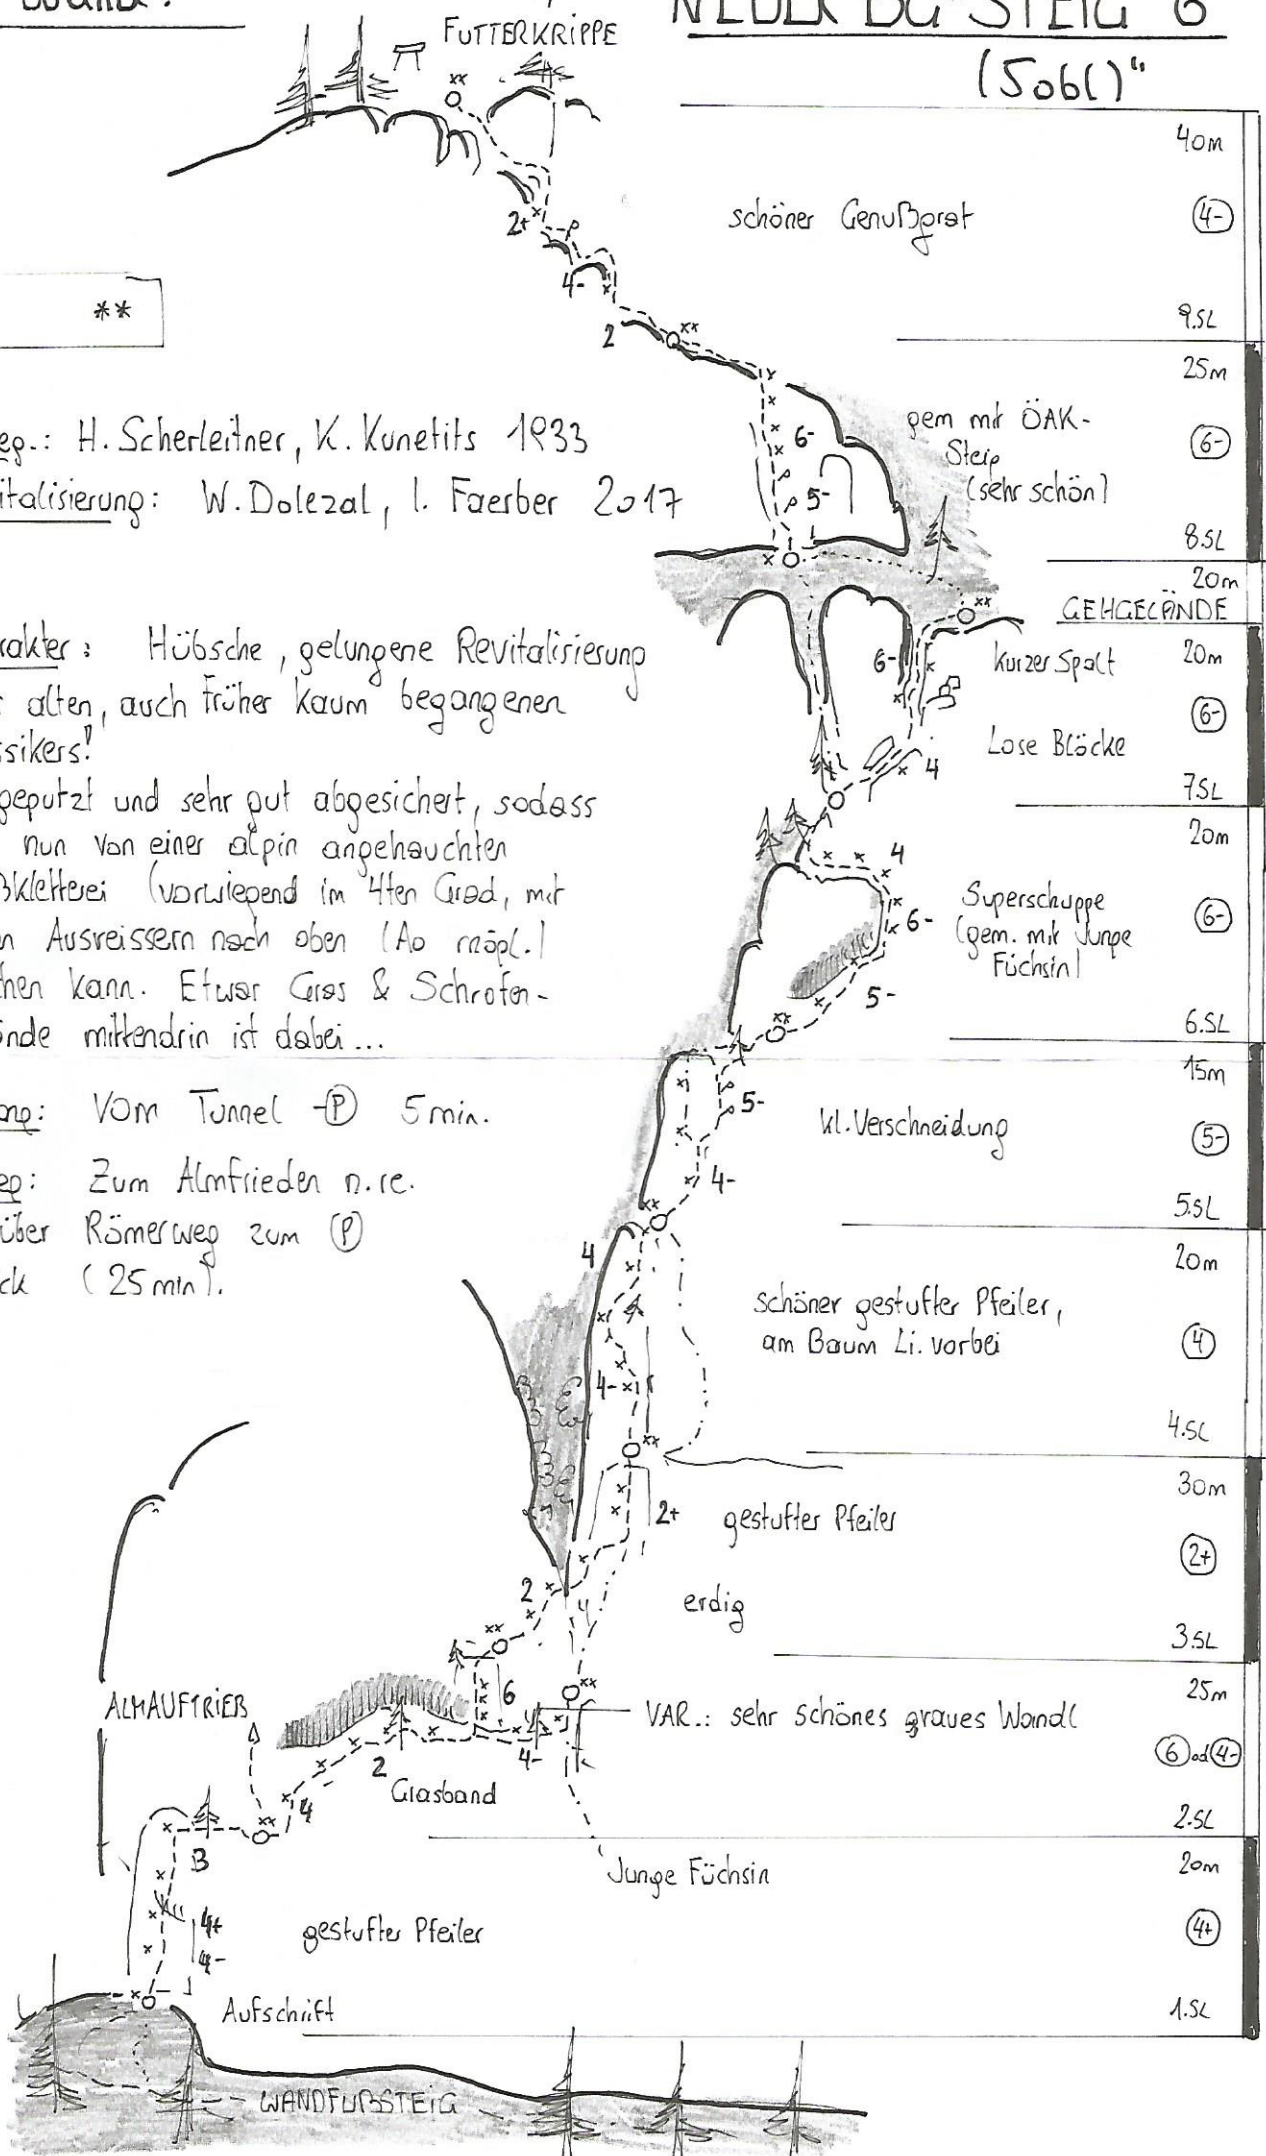 NEUER BG-STEIG 6
(5obl)"
FUTTERKRIPPE
**
H. Scherleitner, K. Kunetits 1933
italisierung: W. Dolezal, I. Faerber 2017
rakter: Hübsche, gelungene Revitalisierung
alten, auch früher kaum begangenen
ssikers!
geputzt und sehr gut abgesichert, sodass
nun von einer alpin angehauchten
ßkletterei (vorwiegend im 4ten Grad, mit
n Ausreissern nach oben (A0 mögl.)
chen kann. Etwas Gras & Schrofen-
ände mittendrin ist dabei...
Vom Tunnel - P 5 min.
Zum Almfrieden n.re.
über Römerweg zum P
ck (25 min).
40m
schöner Genußgrat
4-
9.SL
2+
4-
2
25m
gem mit ÖAK-
Steig
(sehr schön)
6-
8.SL
6-
5-
20m
GEHGELÄNDE
kurzer Spalt
20m
6-
6-
Lose Blöcke
4
7.SL
20m
4
Superschuppe
(gem. mit Junge
Füchsin)
6-
6-
5-
6.SL
15m
5-
kl. Verschneidung
5-
4-
5.SL
4
20m
schöner gestufter Pfeiler,
am Baum Li. vorbei
4
4-
4.SL
30m
2+
gestufter Pfeiler
2+
2
erdig
3.SL
25m
ALMAUFTRIEB
6
VAR.: sehr schönes graues Wandl
6 od 4-
4-
2
Grasband
4
2.SL
3
Junge Füchsin
20m
4+
4-
gestufter Pfeiler
4+
Aufschrift
1.SL
WANDFUßSTEIG